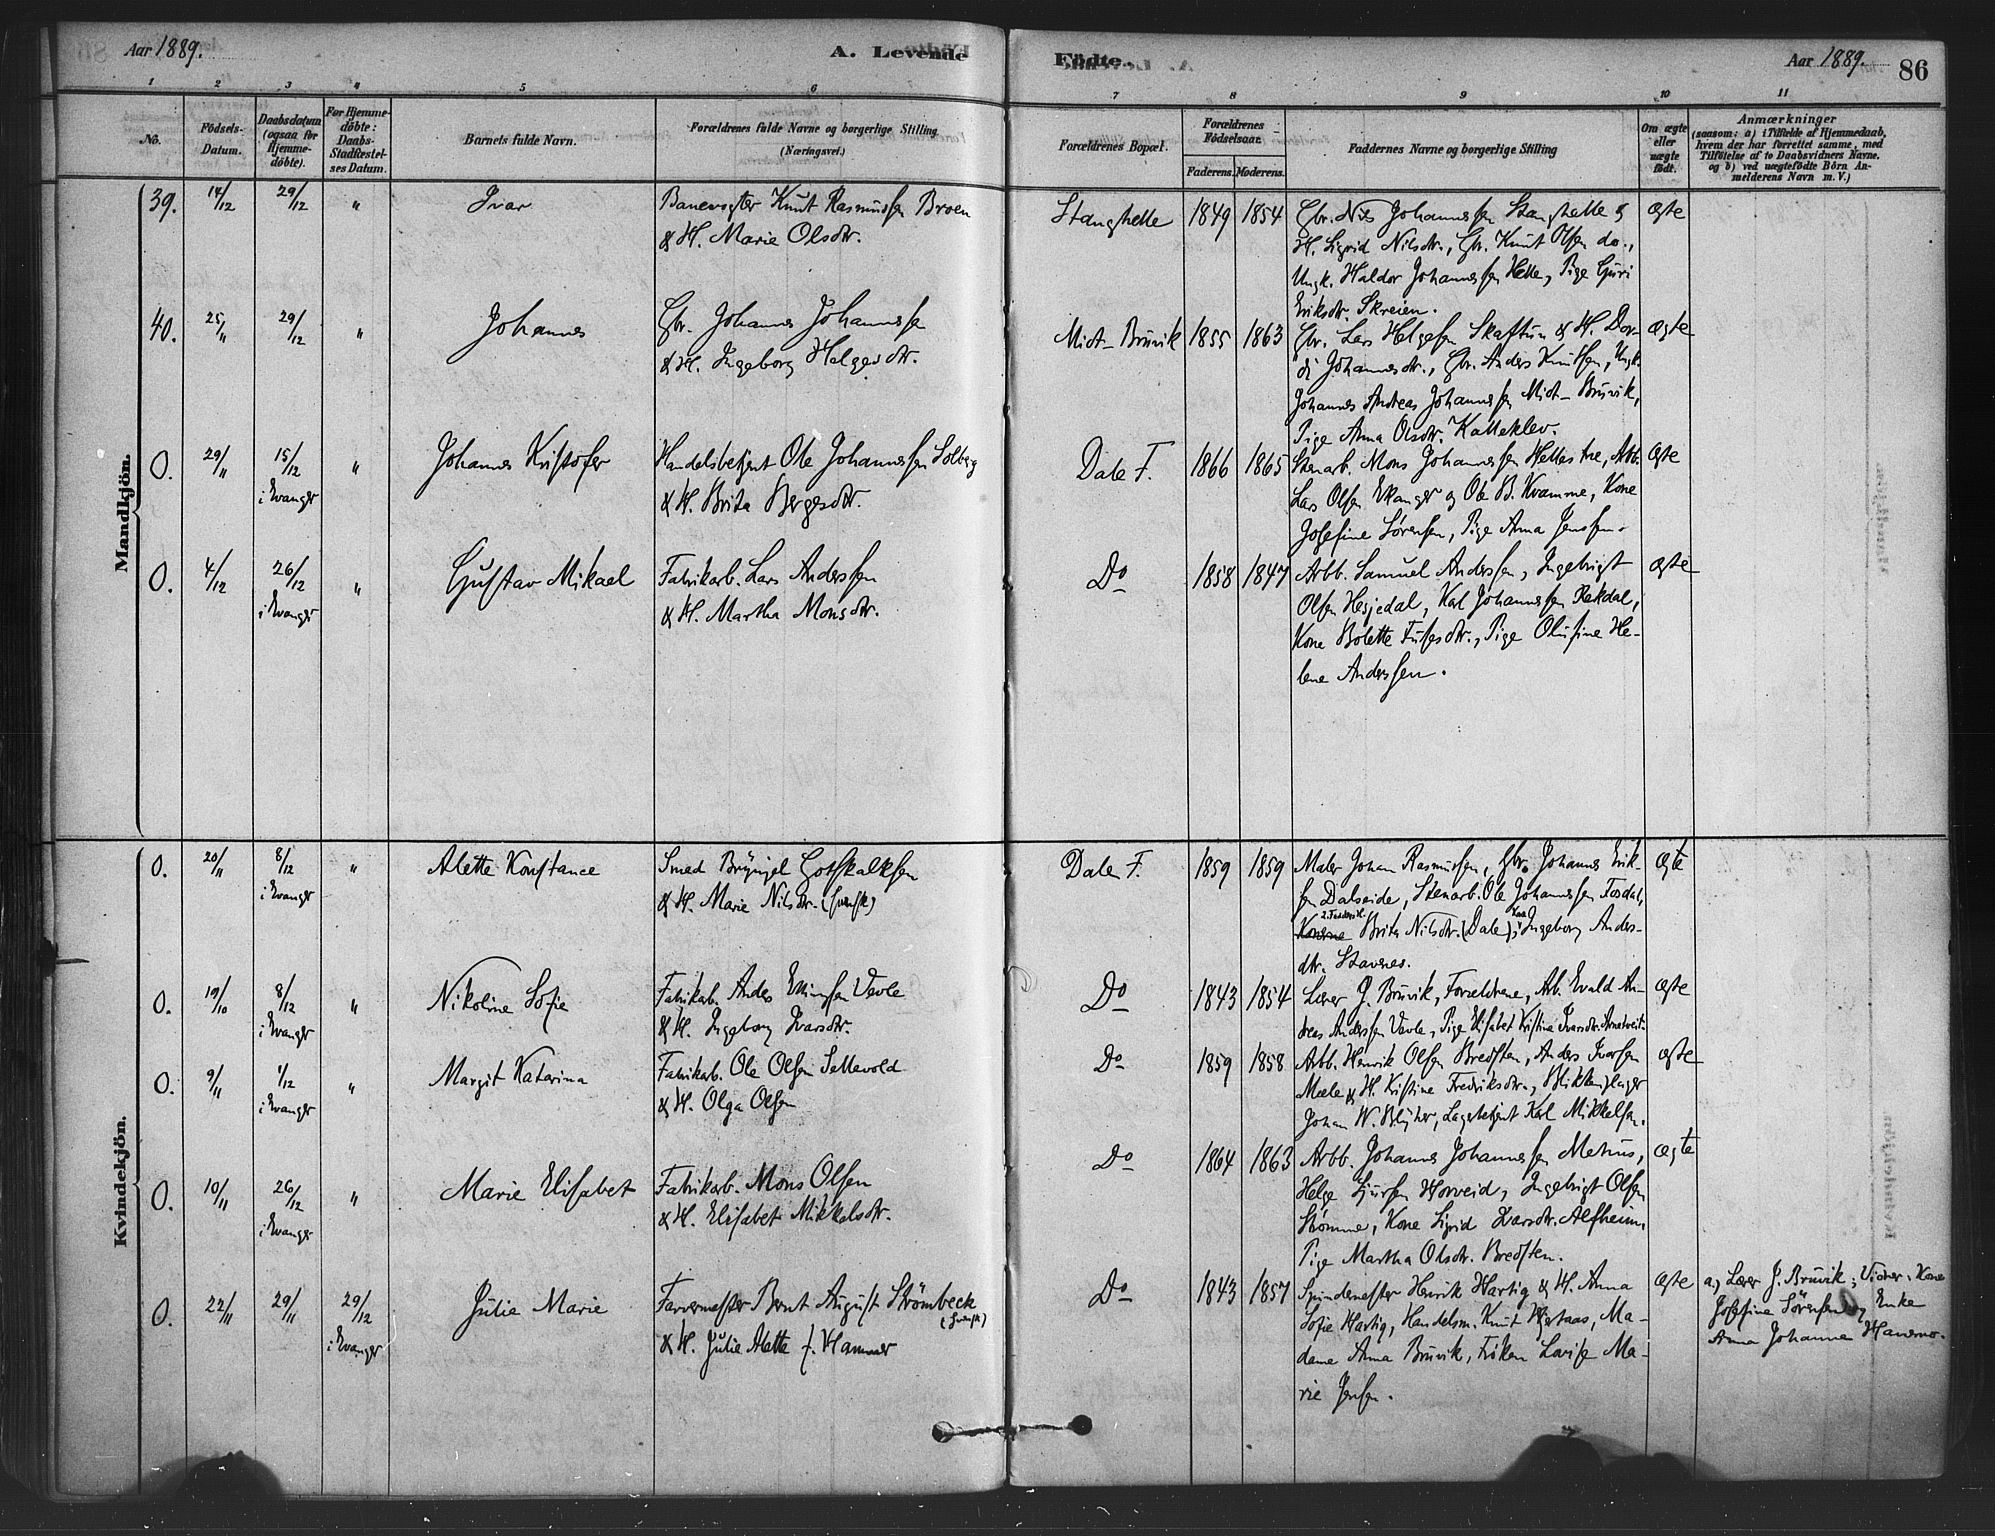 Aar 1889.
A. Levende
Fødte.
Aar 1889.
86
1 2 3 4 5 6 7 8 9 10 11
No.
Födsels-
Datum.
Daabsdatum
(ogsaa for
Hjemme-
döbte).
For Hjemme-
döbte:
Daabs-
Stadfæstel-
ses Datum.
Barnets fulde Navn.
Forældrenes fulde Navne og borgerlige Stilling
(Næringsvei.)
Forældrenes Bopæl.
Forældrenes
Födselsaar.
Faderens. Moderens.
Faddernes Navne og borgerlige Stilling
Om ægte
eller
uægte
født.
Anmærkninger
(saasom: a) i Tilfælde af Hjemmedaab,
hvem der har forrettet samme, med
Tilföielse af to Daabsvidners Navne,
og b) ved uægtefödte Börn An-
melderens Navn m. V.)
Mandkjön.
39. 14/12 29/12 " Ivar
Banevogter Knut Rasmussen Broen
& H. Marie Olsdtr.
Stanghelle 1849 1854
Gbr. Nils Johannessen Stanghelle og
H. Sigrid Nilsdtr., Gbr. Knut Olsen do.,
Ungk. Haldor Johannessen Helle, Pige Guri
Eriksdtr. Skreien.
ægte
40. 25/11 29/12 " Johannes
Gbr. Johannes Johannessen
& H. Ingeborg Helgesdtr.
Midt-Bruvik 1855 1863
Gbr. Lars Helgesen Skaftun & H. Dor-
di Johannesdtr., Gbr. Anders Knutsen, Ungk.
Johannes Andreas Johannessen Midt-Bruvik,
Pige Anna Olsdtr. Katteklev.
ægte
0. 29/11 15/12 i Evanger " Johannes Kristofer
Handelsbetjent Ole Johannessen Solberg
& H. Brita Bergesdtr.
Dale F. 1866 1865
Stenarb. Mons Johannessen Hellestræ, Arb.
Lars Olsen Ekanger og Ole B. Kvamme, Kone
Josefine Sørensen, Pige Anna Jensen.
ægte
0. 4/12 26/12 i Evanger " Gustav Mikael
Fabrikarb. Lars Anderssen
& H. Martha Monsdtr.
Do 1858 1847
Arbb. Samuel Anderssen, Ingebrigt
Olsen Hesjedal, Karl Johannessen Rekdal,
Kone Bolette Fusesdtr., Pige Olufine He-
lene Anderssen.
ægte
Kvindekjön.
0. 20/11 8/12 i Evanger " Alette Konstance
Smed Brynjel Gotskalksen
& H. Marie Nilsdtr. (svensk)
Dale F. 1859 1859
Maler Johan Rasmussen, Gbr. Johannes Erik-
sen Dalseide, Stenarb. Ole Johannessen Fosdal,
Konerne Brita Nilsdtr. (Dale), Ingeborg Anders-
dtr. Stavenes.
ægte
0. 19/10 8/12 i Evanger " Nikoline Sofie
Fabrikarb. Anders Ellingsen Vevle
& H. Ingeborg Ivarsdtr.
Do 1843 1854
Lærer J. Bruvik, Forældrene, Arb. Evald An-
dreas Anderssen Vevle, Pige Elisabet Kristine Ivarsdtr. Arnatveit.
ægte
0. 9/11 1/12 i Evanger " Margit Katarina
Fabrikarb. Ole Olsen Sellevold
& H. Olga Olsen
Do 1859 1858
Arbb. Henrik Olsen Bredsten, Anders Ivarsen
Mæle & H. Kristine Fredriksdtr., Blikkenslager
Johan W. Blyther, Lagerbetjent Karl Mikkelsen.
ægte
0. 10/11 26/12 i Evanger " Marie Elisabet
Fabrikarb. Mons Olsen
& H. Elisabet Mikkelsdtr.
Do 1864 1863
Arbb. Johannes Johannessen Metius,
Helge Sjursen Horveid, Ingebrigt Olsen
Strømme, Kone Sigrid Ivarsdtr. Alfheim,
Pige Martha Olsdtr. Bredsten.
ægte
0. 22/11 29/11 29/12 i Evanger Julie Marie
Farvermester Bernt August Strömbeck
(svensk)
& H. Julie Alette f. Hammer
Do 1843 1857
Spindemester Henrik Hartig & H. Anna
Sofie Hartig, Handelsm. Knut Hjertaas, Ma-
dame Anna Bruvik, Frøken Lovise Ma-
rie Jensen.
ægte
a) Lærer J. Bruvik; Vidner: Kone
Josefine Sörensen og Enke
Anna Johanna Hanemo.